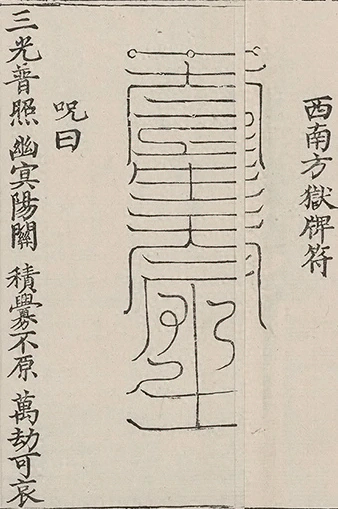 西南方獄牌符
呪曰
三光普照 幽冥陽關 積釁不原 萬劫可哀